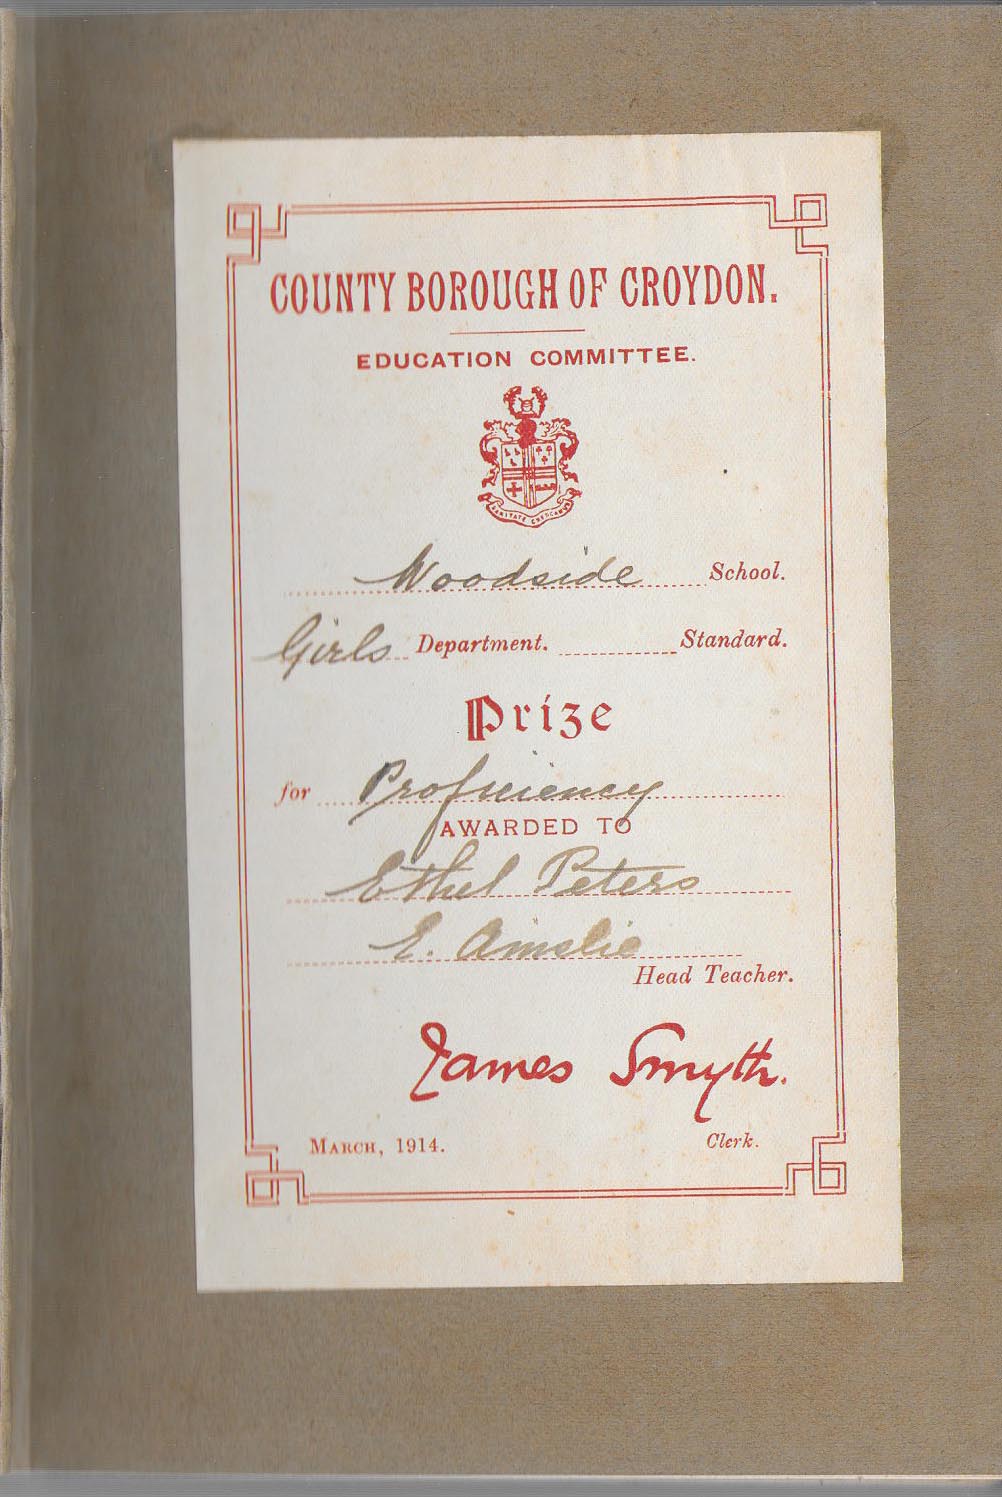 COUNTY BOROUGH OF CROYDON.
EDUCATION COMMITTEE.
SANITATE CRESCAMUS
Woodside School.
Girls Department. Standard.
Prize
for Proficiency
AWARDED TO
Ethel Peters
E. Ainslie
Head Teacher.
James Smyth.
MARCH, 1914. Clerk.